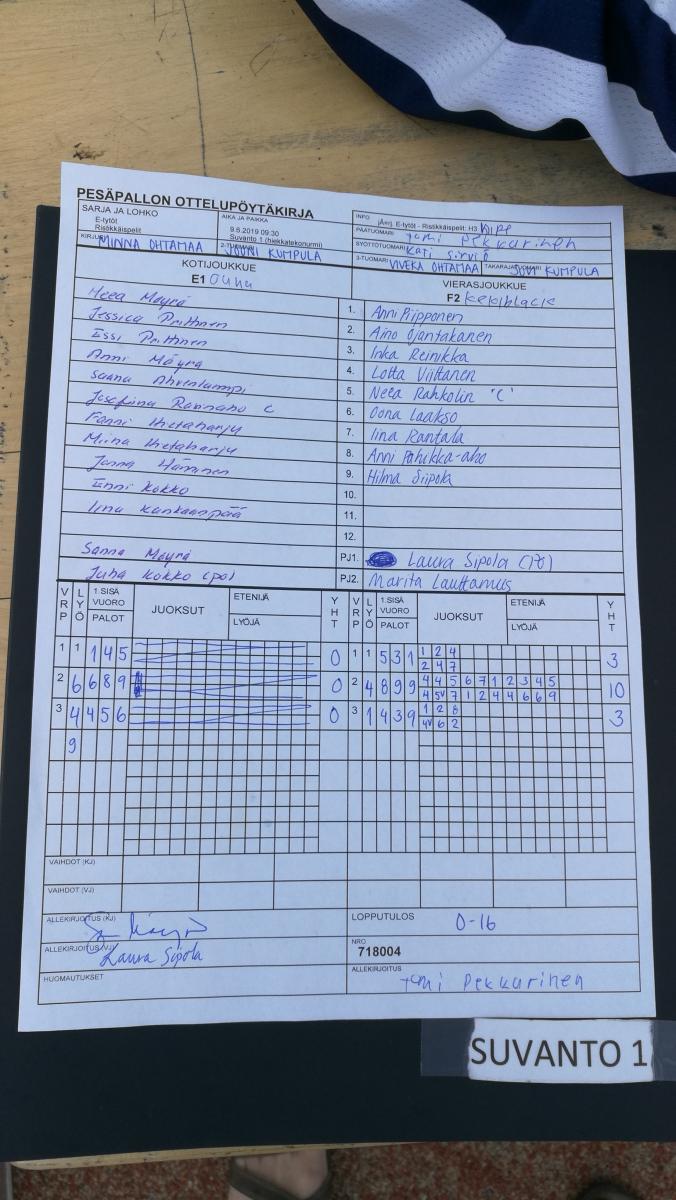 PESÄPALLON OTTELUPÖYTÄKIRJA
SARJA JA LOHKO
E-tytöt
Ristikkäispelit
AIKA JA PAIKKA
9.6.2019 09:30
Suvanto 1 (hiekkatekonurmi)
INFO
E-tytöt - Ristikkäispelit: H3
PÄÄTUOMARI Tomi Pekkarinen
SYÖTTÖTUOMARI Kati Sirviö
KIRJURI MINNA OHTAMAA
2-TUOMARI JOUNI KUMPULA
3-TUOMARI VIVEKA OHTAMAA
TAKARAJATUOMARI JOUNI KUMPULA
KOTIJOUKKUE
E1
VIERASJOUKKUE
F2 Kekiblack
Heea Möyrä
Jessica Prittinen
Essi Prittinen
Anni Möyrä
Saana Ahvenlampi
Josefiina Rannaho C
Fanni Ihetaharju
Miina Ihetaharju
Janna Hänninen
Enni Kokko
Iina Kankaanpää
Sanna Möyrä
Juha Kokko (po)
1. Anni Piipponen
2. Aino Ojantakanen
3. Inka Reinikka
4. Lotta Viittanen
5. Neea Rahkolin "C"
6. Oona Laakso
7. Iina Rantala
8. Anni Pahikka-aho
9. Hilma Siipola
10.
11.
12.
PJ1. Laura Sipola (PJ)
PJ2. Marita Lauttamus
VRP LYÖ 1.SISÄ VUORO PALOT JUOKSUT ETENIJÄ LYÖJÄ YHT
VRP LYÖ 1.SISÄ VUORO PALOT JUOKSUT ETENIJÄ LYÖJÄ YHT
1 1 1 4 5 0
1 1 5 3 1 1 2 4 3
2 4 7
2 6 6 8 9 0
2 4 8 9 9 4 4 5 6 7 1 2 3 4 5 10
4 5V 7 1 2 4 4 6 6 9
3 4 4 5 6 0
3 1 4 3 9 1 2 8 3
4V 6 2
9
VAIHDOT (KJ)
VAIHDOT (VJ)
ALLEKIRJOITUS (KJ)
ALLEKIRJOITUS (VJ) Laura Sipola
HUOMAUTUKSET
LOPPUTULOS 0-16
NRO
718004
ALLEKIRJOITUS Tomi Pekkarinen
SUVANTO 1